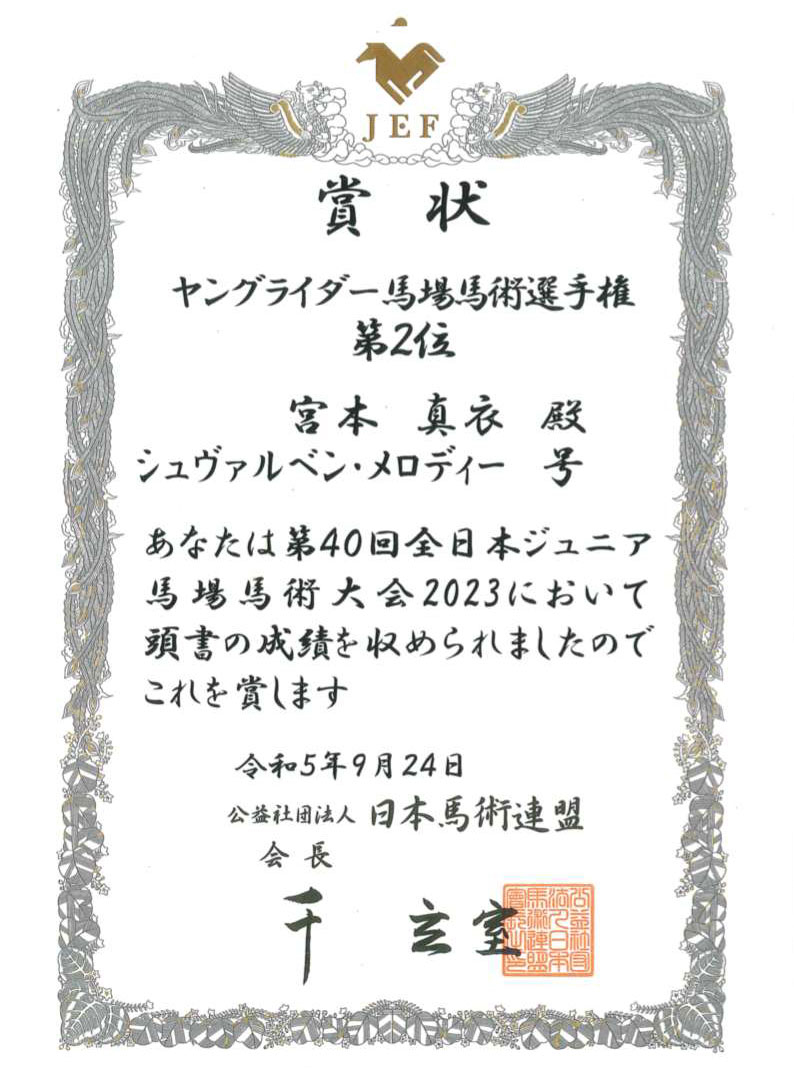 JEF
賞 状
ヤングライダー馬場馬術選手権
第2位
宮本 真衣 殿
シュヴァルベン・メロディー 号
あなたは第40回全日本ジュニア
馬場馬術大会2023において
頭書の成績を収められましたので
これを賞します
令和5年9月24日
公益社団法人 日本馬術連盟
会長
千 玄室